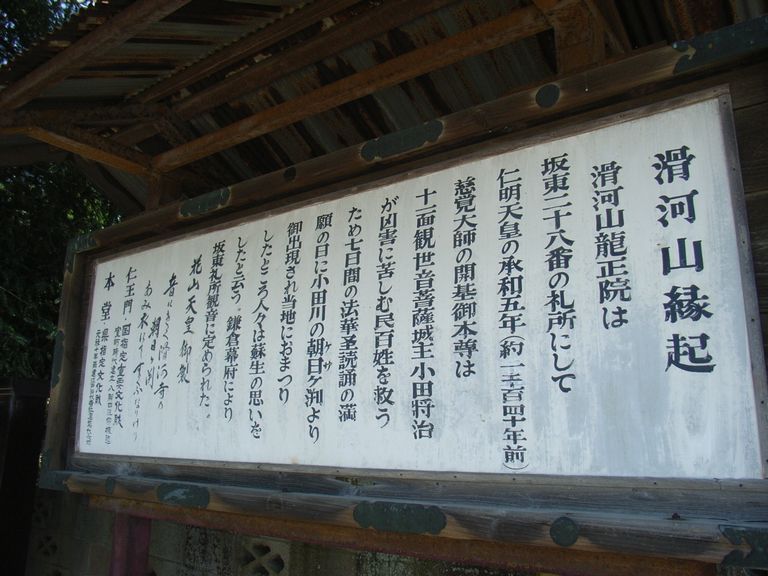 滑河山縁起
滑河山龍正院は
坂東二十八番の札所にして
仁明天皇の承和五年(約一千百四十年前)
慈覚大師の開基御本尊は
十一面観世音菩薩城主小田将治
が凶害に苦しむ民百姓を救う
ため七日間の法華圣読誦の満
願の日に小田川の朝日ケ渕より
御出現され当地におまつり
したところ人々は蘇生の思いを
したと云う。鎌倉幕府により
坂東札所観音に定められた。
花山天皇御製
音にきく滑河寺の
朝日ケ渕
あみ衣にて すくふなりけり
仁王門 国指定重要文化財
本堂 県指定文化財